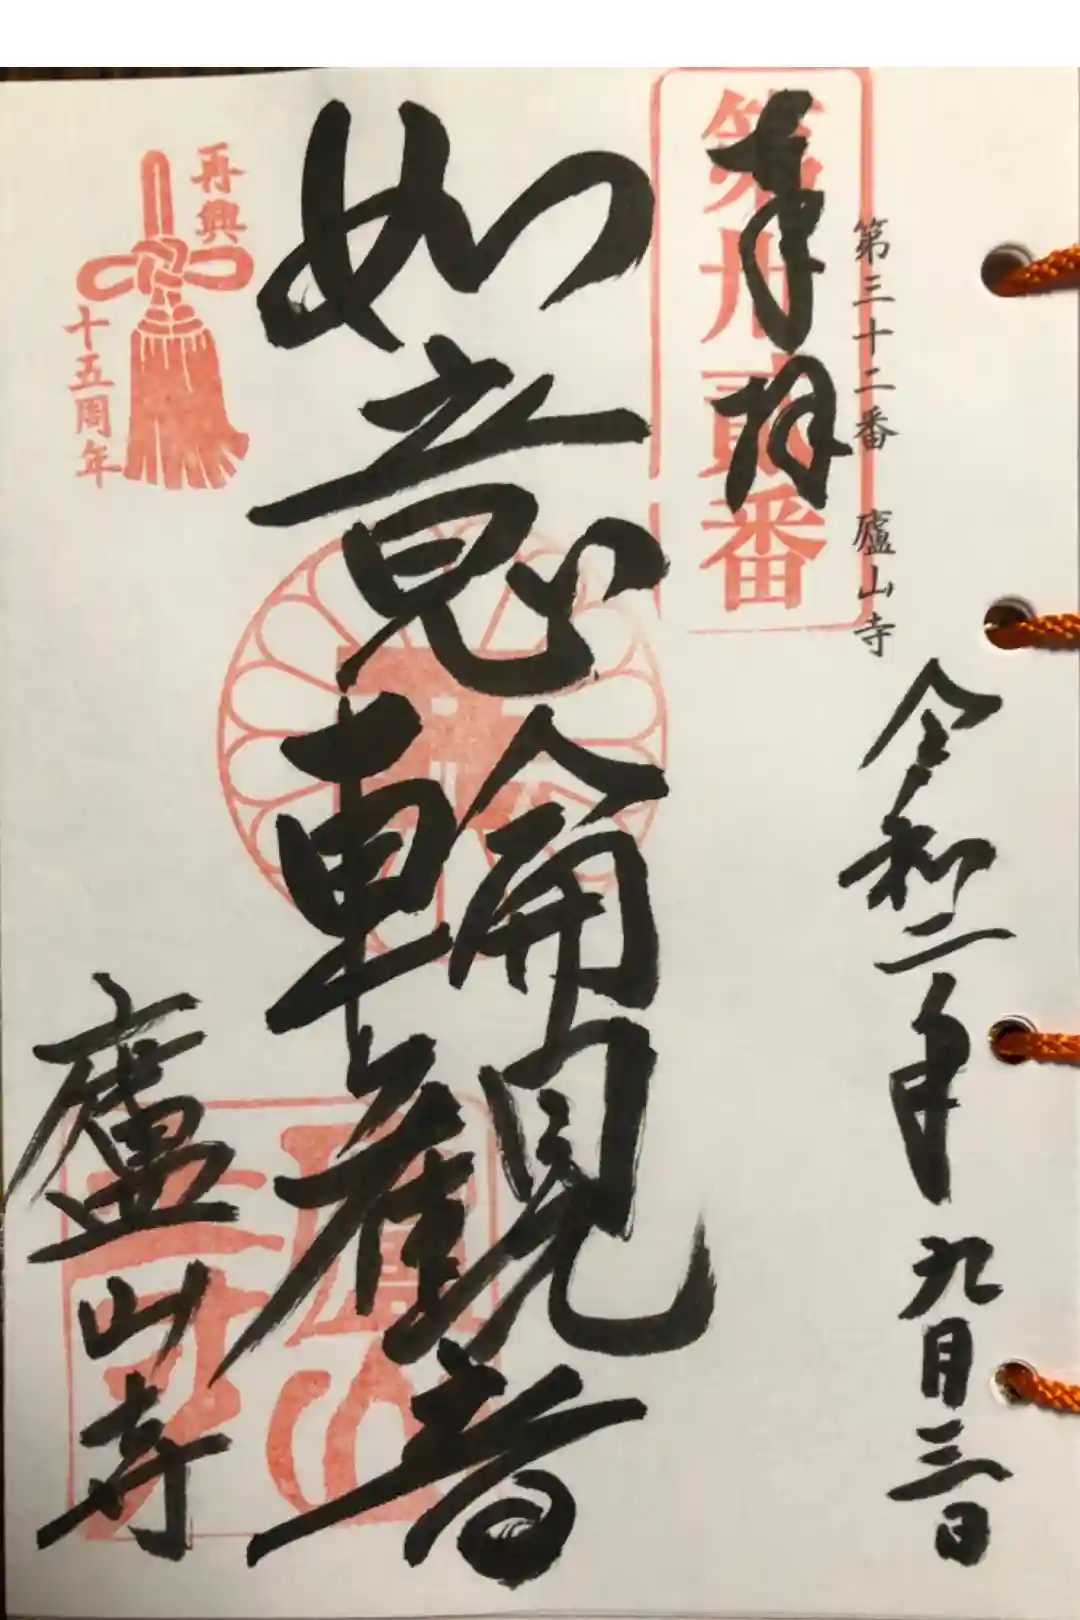 第三十二番 廬山寺
奉拝
第卅貳番
令和二年九月三日
如意輪観音
廬山寺
再興
十五周年